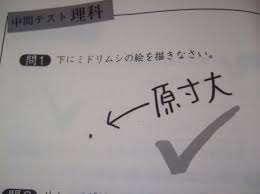 中間テスト 理科
問1 下にミドリムシの絵を描きなさい。
原寸大